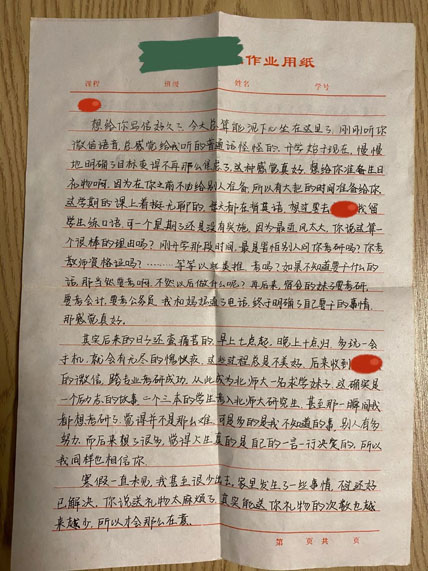 作业用纸
课程 班级 姓名 学号
想给你写信好久了，今天总算能沉下心坐在这里了，刚刚听你
微信语音，总感觉给我听的普通话怪怪的。开学始于现在，慢慢
地明确了目标变得不再那么焦虑了，这种感觉真好。想给你准备生日
礼物啊，因为在你之前不也给别人准备，所以有大把的时间准备给你
这学期的课上看挺无聊的，每天都在背英语，想过要去 找留
学生练口语，可一个星期了还是没有实施，因为最近风太大，你说这算一
个很棒的理由吗？刚开学那段时间，最是害怕别人问你考研吗？你考
教师资格证吗？………等等以此类推 考吗？如果不知道要干什么的
话，那当然要考啊，不然以后做什么呢？再后来，宿舍的妹子要考研，
要考会计，要考公务员，我和妈妈通了电话，终于明确了自己要干的事情，
那感觉真好。
其实后来的日子还蛮痛苦的，早上七点起，晚上十点归，多玩一会
手机，就会有无尽的愧疚夜，这些过程总是不美好，后来收到
的微信，跨专业考研成功，从此成为北师大一名求学妹子，这确实是
一个励志的故事，一个三本的学生考入北师大研究生，甚至那一瞬间我
都想考研了，觉得并不是那么难，可是多的是我不知道的事，别人有多
努力，而后来想了很多，觉得人生真的是自己的一言一行决定的，所以
我同样也相信你。
寒假一直卡见，我甚至很少出去，家里发生了一些事情，不过还好
已解决，你说送礼物太麻烦了，其实能送你礼物的次数也越
来越少，所以才会那么在意。
第 页 共 页